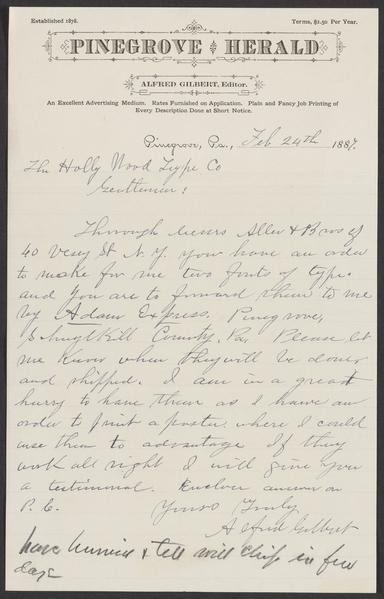 Established 1878.
Terms, $1.50 Per Year.
PINEGROVE HERALD
ALFRED GILBERT, Editor.
An Excellent Advertising Medium. Rates Furnished on Application. Plain and Fancy Job Printing of
Every Description Done at Short Notice.
Pinegrove, Pa., Feb 24th 1887.
The Holly Wood Type Co
Gentlemen:
Through Messrs Allen & Bros of
40 Vesey St N.Y. you have an order
to make for me two fonts of type.
and you are to forward them to me
by Adams Express. Pinegrove,
Schuylkill County. Pa. Please let
me know when they will be done
and shipped. I am in a great
hurry to have them as I have an
order to print a poster where I could
use them to advantage If they
work all right I will give you
a testimonial. Enclose answer on
P. C. Yours Truly
Alfred Gilbert
& tell will ship in few
days